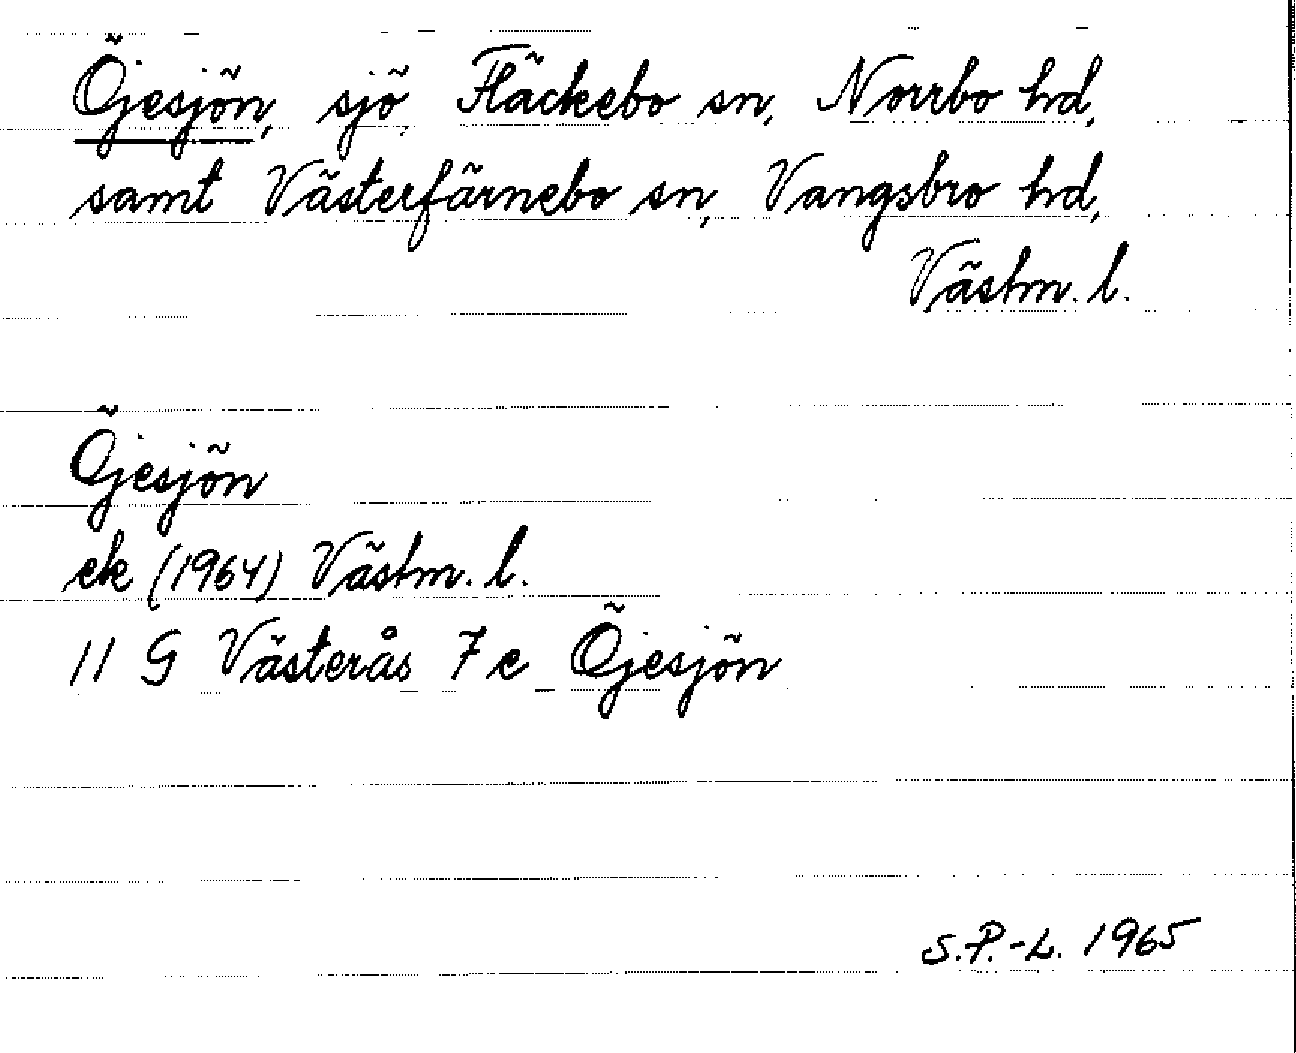 Öjesjön, sjö, Fläckebo sn, Norrbo hd,
samt Västerfärnebo sn, Vangsbro hd,
Västm. l.
Öjesjön
ek (1964) Västm. l.
11 G Västerås 7e Öjesjön
S.P.-L. 1965